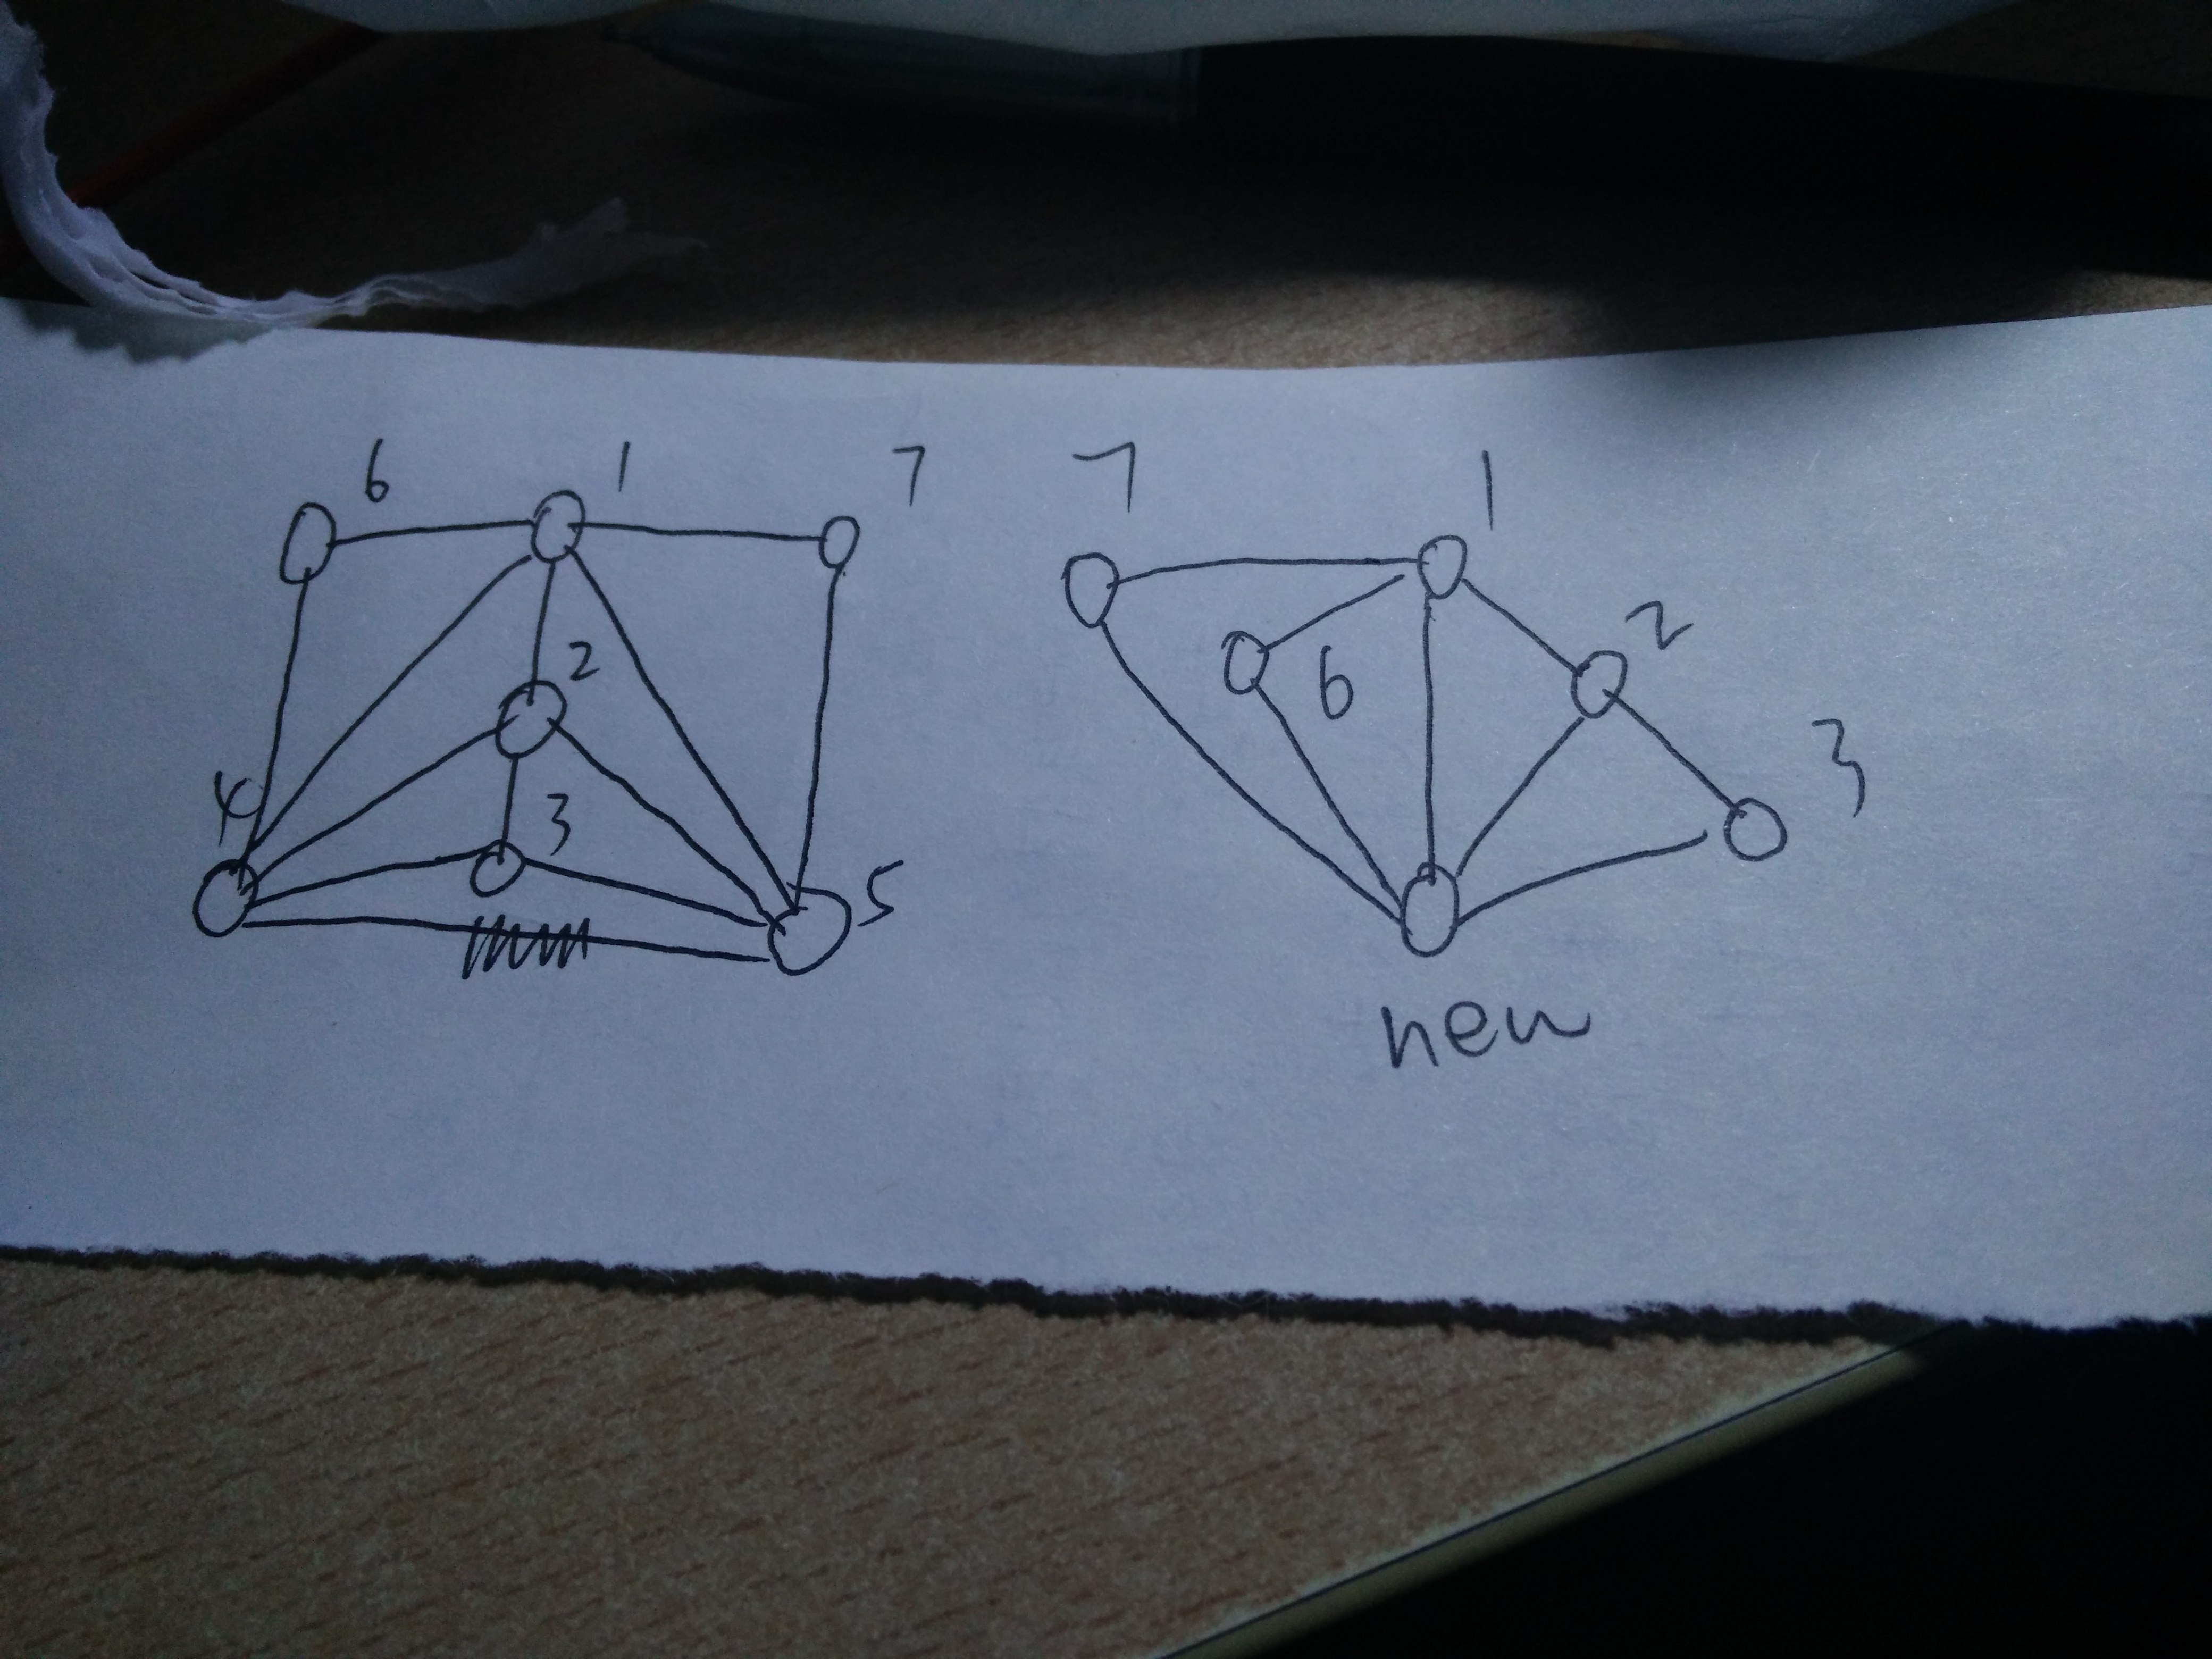 6 1 7
2
4 3
5
7 1
6 2
3
new